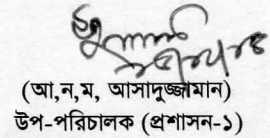 (আ,ন,ম, আসাদুজ্জামান)
উপ-পরিচালক (প্রশাসন-১)